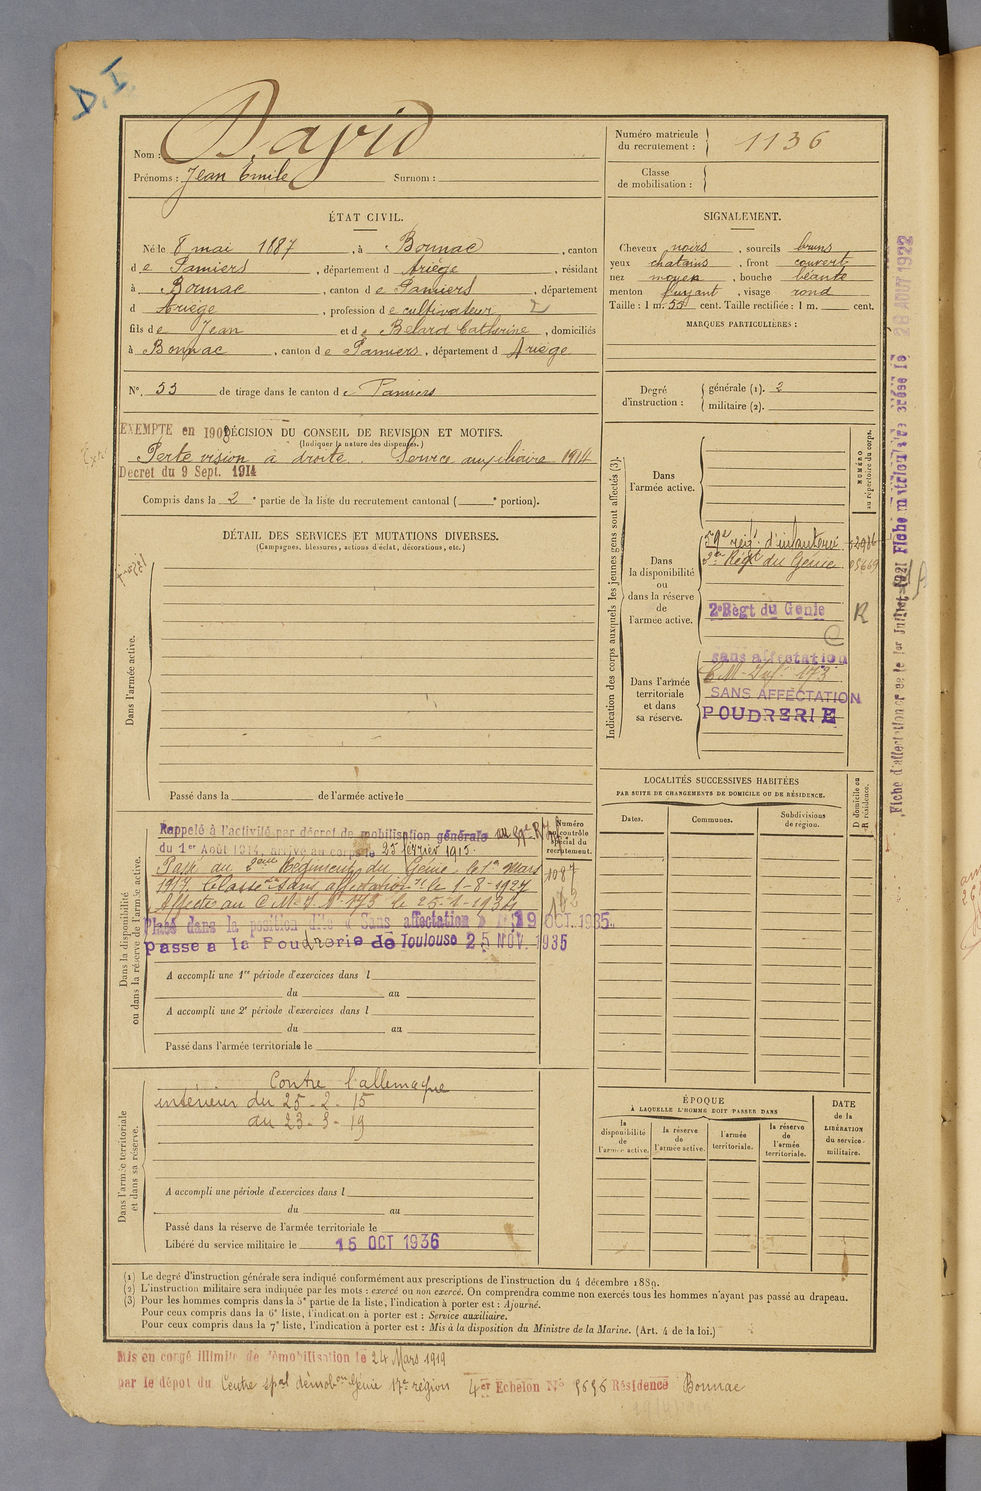 D. I.
Nom : David
Prénoms : Jean Emile Surnom :
Numéro matricule du recrutement : 1136
Classe de mobilisation :
ÉTAT CIVIL.
Né le 8 mai 1887, à Bonnac, canton
de Pamiers, département d Ariège, résidant
à Bonnac, canton de Pamiers, département
d Ariège, profession de cultivateur
fils de Jean et de Belard Catherine, domiciliés
à Bonnac, canton de Pamiers, département d Ariège
SIGNALEMENT.
Cheveux noirs, sourcils bruns
yeux chatains, front couvert
nez moyen, bouche béante
menton fuyant, visage rond
Taille : 1 m. 55 cent. Taille rectifiée : 1 m. cent.
MARQUES PARTICULIÈRES :
N°. 55 de tirage dans le canton de Pamiers
Degré d'instruction : générale (1). 2
militaire (2).
EXEMPTE en 1908
DÉCISION DU CONSEIL DE REVISION ET MOTIFS.
(Indiquer la nature des dispenses.)
Perte vision à droite. Service auxiliaire 1914
Décret du 9 Sept. 1914
Compris dans la 2e partie de la liste du recrutement cantonal ( e portion).
DÉTAIL DES SERVICES ET MUTATIONS DIVERSES.
(Campagnes, blessures, actions d'éclat, décorations, etc.)
Dans l'armée active.
Passé dans la de l'armée active le
Indication des corps auxquels les jeunes gens sont affectés (3).
NUMÉRO au répertoire du corps.
Dans l'armée active.
Dans la disponibilité ou dans la réserve de l'armée active.
59e régt d'infanterie
2e Régt du Génie
2e Régt du Génie R
Dans l'armée territoriale et dans sa réserve.
sans affectation
C M 173
SANS AFFECTATION
POUDRERIE
Fiche d'affectation créée le 1er Juillet 1921 Fiche matricule créée le 28 AOUT 1922
LOCALITÉS SUCCESSIVES HABITÉES
PAR SUITE DE CHANGEMENTS DE DOMICILE OU DE RÉSIDENCE.
Dates. Communes. Subdivisions de région. D domicile ou R résidence.
Dans la disponibilité ou dans la réserve de l'armée active.
Numéro au contrôle spécial du recrutement.
Rappelé à l'activité par décret de mobilisation générale
du 1er Août 1914, arrivé au corps le 25 février 1915.
Passé au 2ème Régiment du Génie le 1er mars
1917. Classé sans affectation le 1-8-1927
Affecté au C.M.I. N° 173 le 25-1-1934
Placé dans la position dite « Sans affectation » 19 OCT 1935.
passé à la Poudrerie de Toulouse 25 NOV. 1935
1087
142
A accompli une 1re période d'exercices dans l
du au
A accompli une 2e période d'exercices dans l
du au
Passé dans l'armée territoriale le
Dans l'armée territoriale et dans sa réserve.
Contre l'allemagne
intérieur du 25-2-15
au 23-3-19
A accompli une période d'exercices dans l
du au
Passé dans la réserve de l'armée territoriale le
Libéré du service militaire le 15 OCT 1936
ÉPOQUE
À LAQUELLE L'HOMME DOIT PASSER DANS
la disponibilité de l'armée active. la réserve de l'armée active. l'armée territoriale. la réserve de l'armée territoriale.
DATE de la LIBÉRATION du service militaire.
(1) Le degré d'instruction générale sera indiqué conformément aux prescriptions de l'instruction du 4 décembre 1889.
(2) L'instruction militaire sera indiquée par les mots : exercé ou non exercé. On comprendra comme non exercés tous les hommes n'ayant pas passé au drapeau.
(3) Pour les hommes compris dans la 5e partie de la liste, l'indication à porter est : Ajourné.
Pour ceux compris dans la 6e liste, l'indication à porter est : Service auxiliaire.
Pour ceux compris dans la 7e liste, l'indication à porter est : Mis à la disposition du Ministre de la Marine. (Art. 4 de la loi.)
Mis en congé illimité de démobilisation le 24 Mars 1919
par le dépôt du Centre spal démobon Génie 17e région 4er Echelon N° 5696 Résidence Bonnac